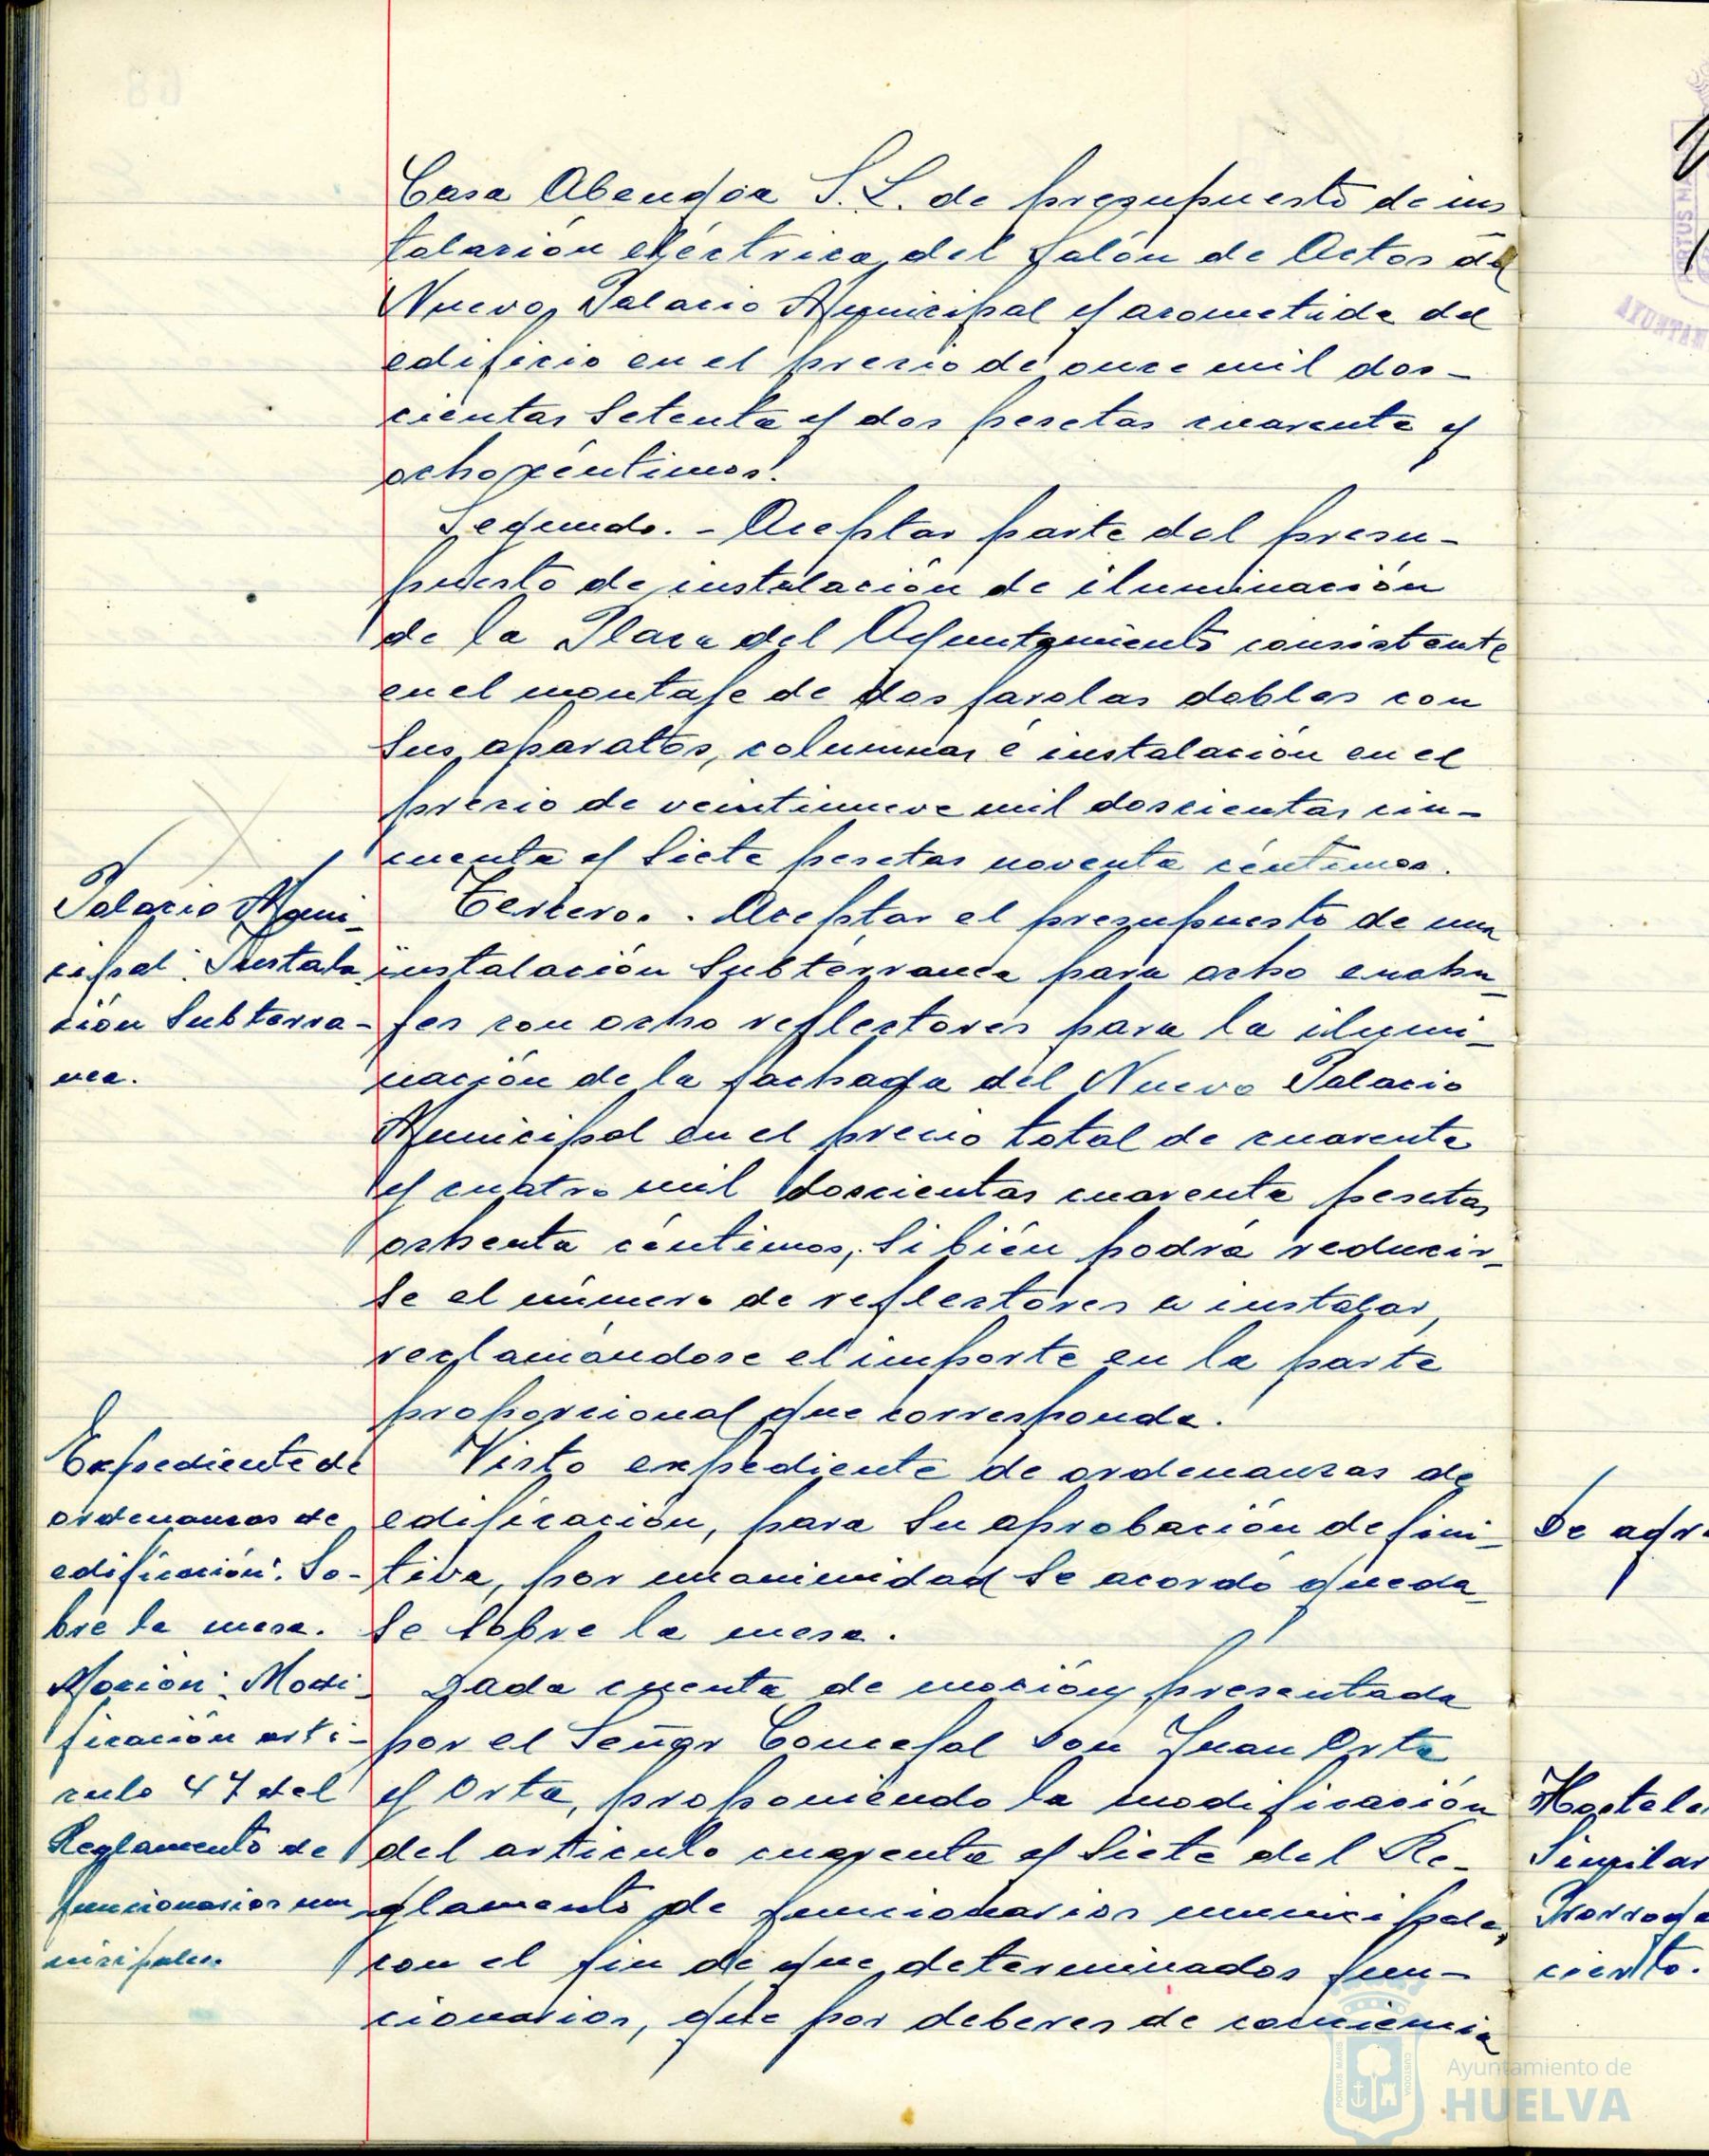 Casa Abengoa S.L. de presupuesto de ins
talación eléctrica del Salón de Actos del
Nuevo Palacio Municipal y acometida del
edificio en el precio de once mil dos-
cientas setenta y dos pesetas cuarenta y
ocho céntimos.
Segundo. - Aceptar parte del presu-
puesto de instalación de iluminación
de la Plaza del Ayuntamiento consistente
en el montaje de dos farolas dobles con
sus aparatos, columnas é instalación en el
precio de veintinueve mil doscientas cin-
cuenta y siete pesetas noventa céntimos.
Palacio Muni-
cipal: Instala
ción Subterra-
nea.
Tercero. - Aceptar el presupuesto de una
instalación subterranea para ocho enchu-
fes con ocho reflectores para la ilumi-
nación de la fachada del Nuevo Palacio
Municipal en el precio total de cuarenta
y cuatro mil doscientas cuarenta pesetas
ochenta céntimos, si bién podrá reducir-
se el número de reflectores a instalar,
reclamándose el importe en la parte
proporcional que corresponda.
Expediente de
ordenanzas de
edificación: So-
bre la mesa.
Visto expediente de ordenanzas de
edificación, para su aprobación defini-
tiva, por unanimidad se acordó queda-
se sobre la mesa.
Moción: Modi-
ficación artí-
culo 47 del
Reglamento de
funcionarios mu
nicipales.
Dada cuenta de moción presentada
por el Señor Concejal Don Juan Orta
y Orta, proponiendo la modificación
del artículo cuarenta y siete del Re-
glamento de funcionarios municipales,
con el fin de que determinados fun-
cionarios, que por deberes de conciencia
De agr
Hostele
Singular
Prorroga
ciento.
AYUNTAM
Ayuntamiento de
HUELVA
PORTUS MARIS
CUSTODIA